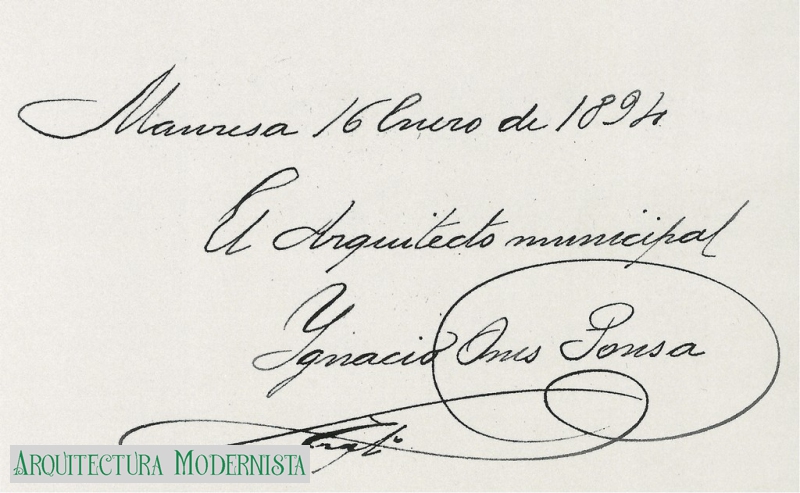 Manresa 16 Enero de 1894
El Arquitecto municipal
Ygnacio Oms Ponsa
Arqto
ARQUITECTURA MODERNISTA